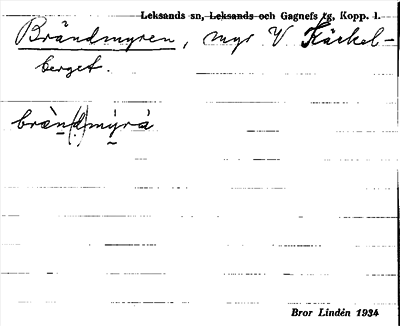 Leksands sn, Leksands och Gagnefs tg, Kopp. l.
Brändmyren, myr V Käckel-
berget.
bræ̀n(d)mýrà
Bror Lindén 1934